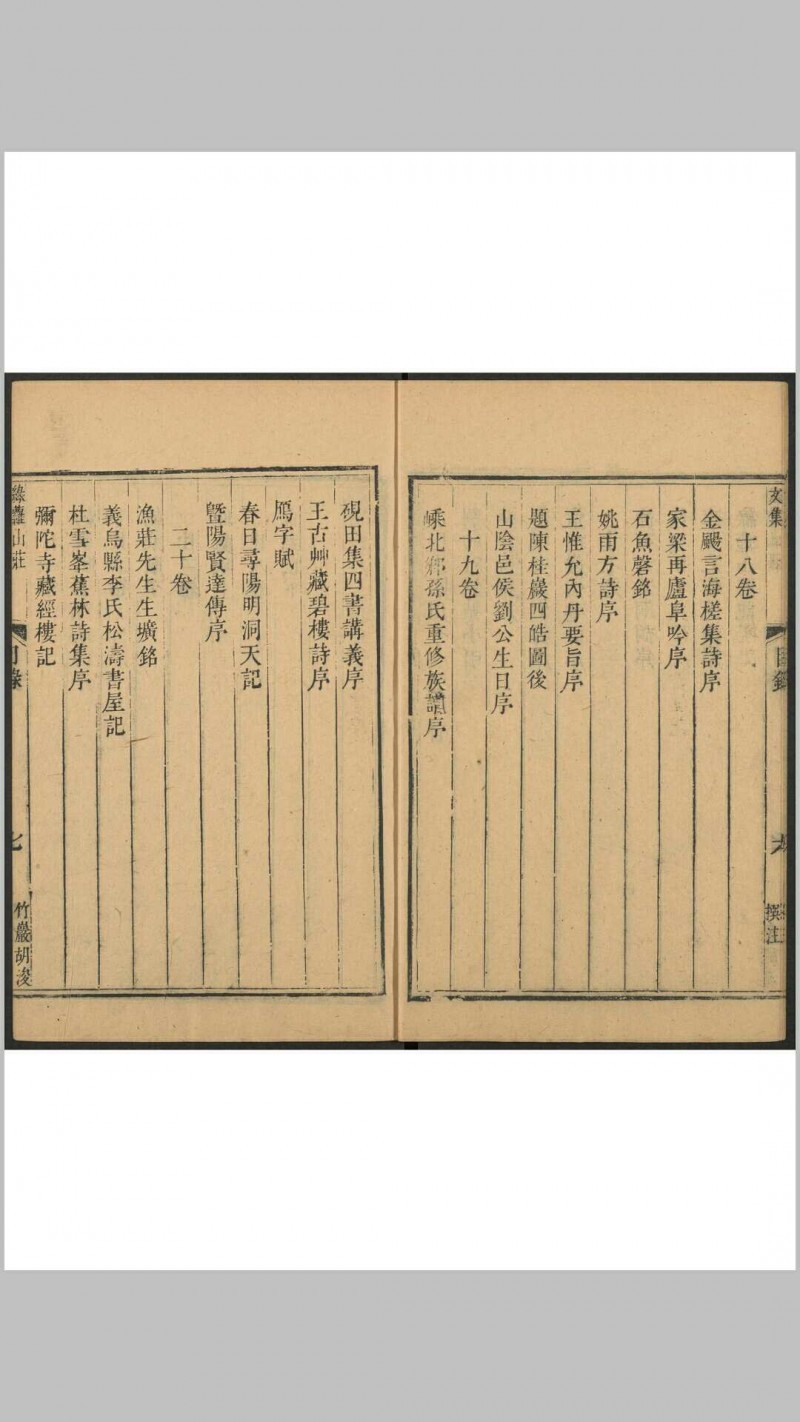 文集
目錄
撰注
十八卷
金颺言海槎集詩序
家梁再廬阜吟序
石魚磬銘
姚雨方詩序
王惟允內丹要旨序
題陳桂巖四皓圖後
山陰邑侯劉公生日序
十九卷
嵊北鄉孫氏重修族譜序
硯田集四書講義序
王古艸藏碧樓詩序
鴈字賦
春日尋陽明洞天記
曁陽賢達傳序
二十卷
漁莊先生生壙銘
義烏縣李氏松濤書屋記
杜雪峯蕉林詩集序
彌陀寺藏經樓記
綠蘿山莊
目錄
七
竹巖胡浚